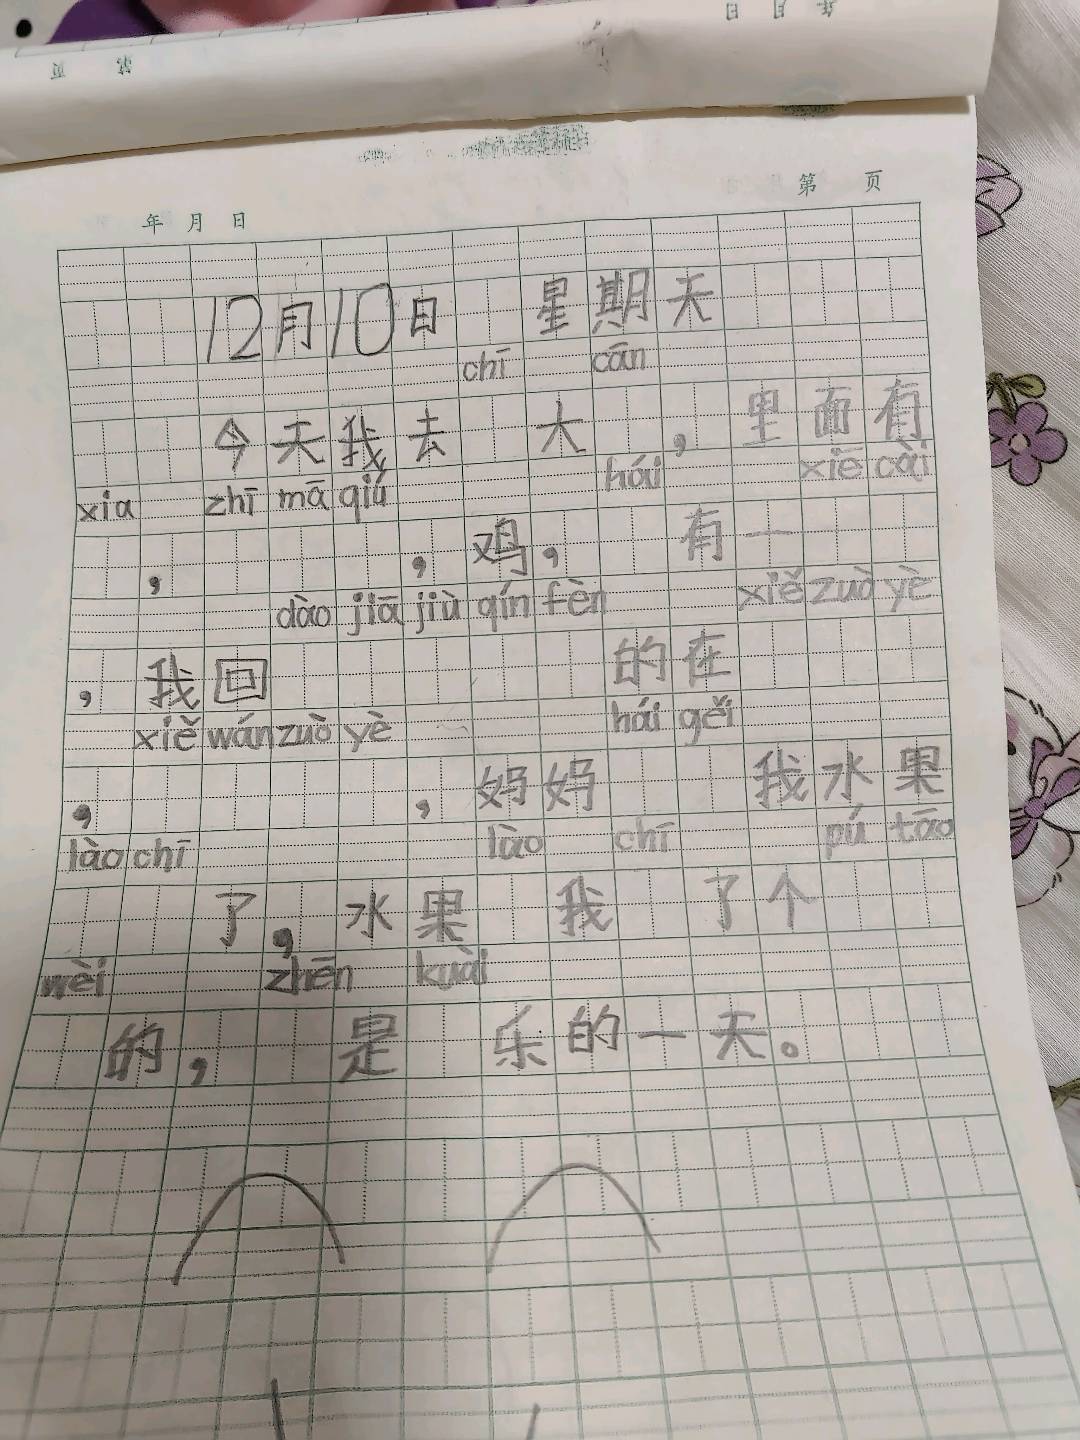 年 月 日
第 页
年 月 日
第 页
12月10日 星期天
chī cān
今天我去 大 ，里面有
xia zhī mā qiú hái xiē cài
， ，鸡， 有一
dào jiā jiù qín fèn xiě zuò yè
，我回 的在
xiě wán zuò yè hái gěi
， ，妈妈 我水果
lào chī lào chī pú tāo
了，水果 我 了个
wèi zhēn kuài
的， 是 乐的一天。